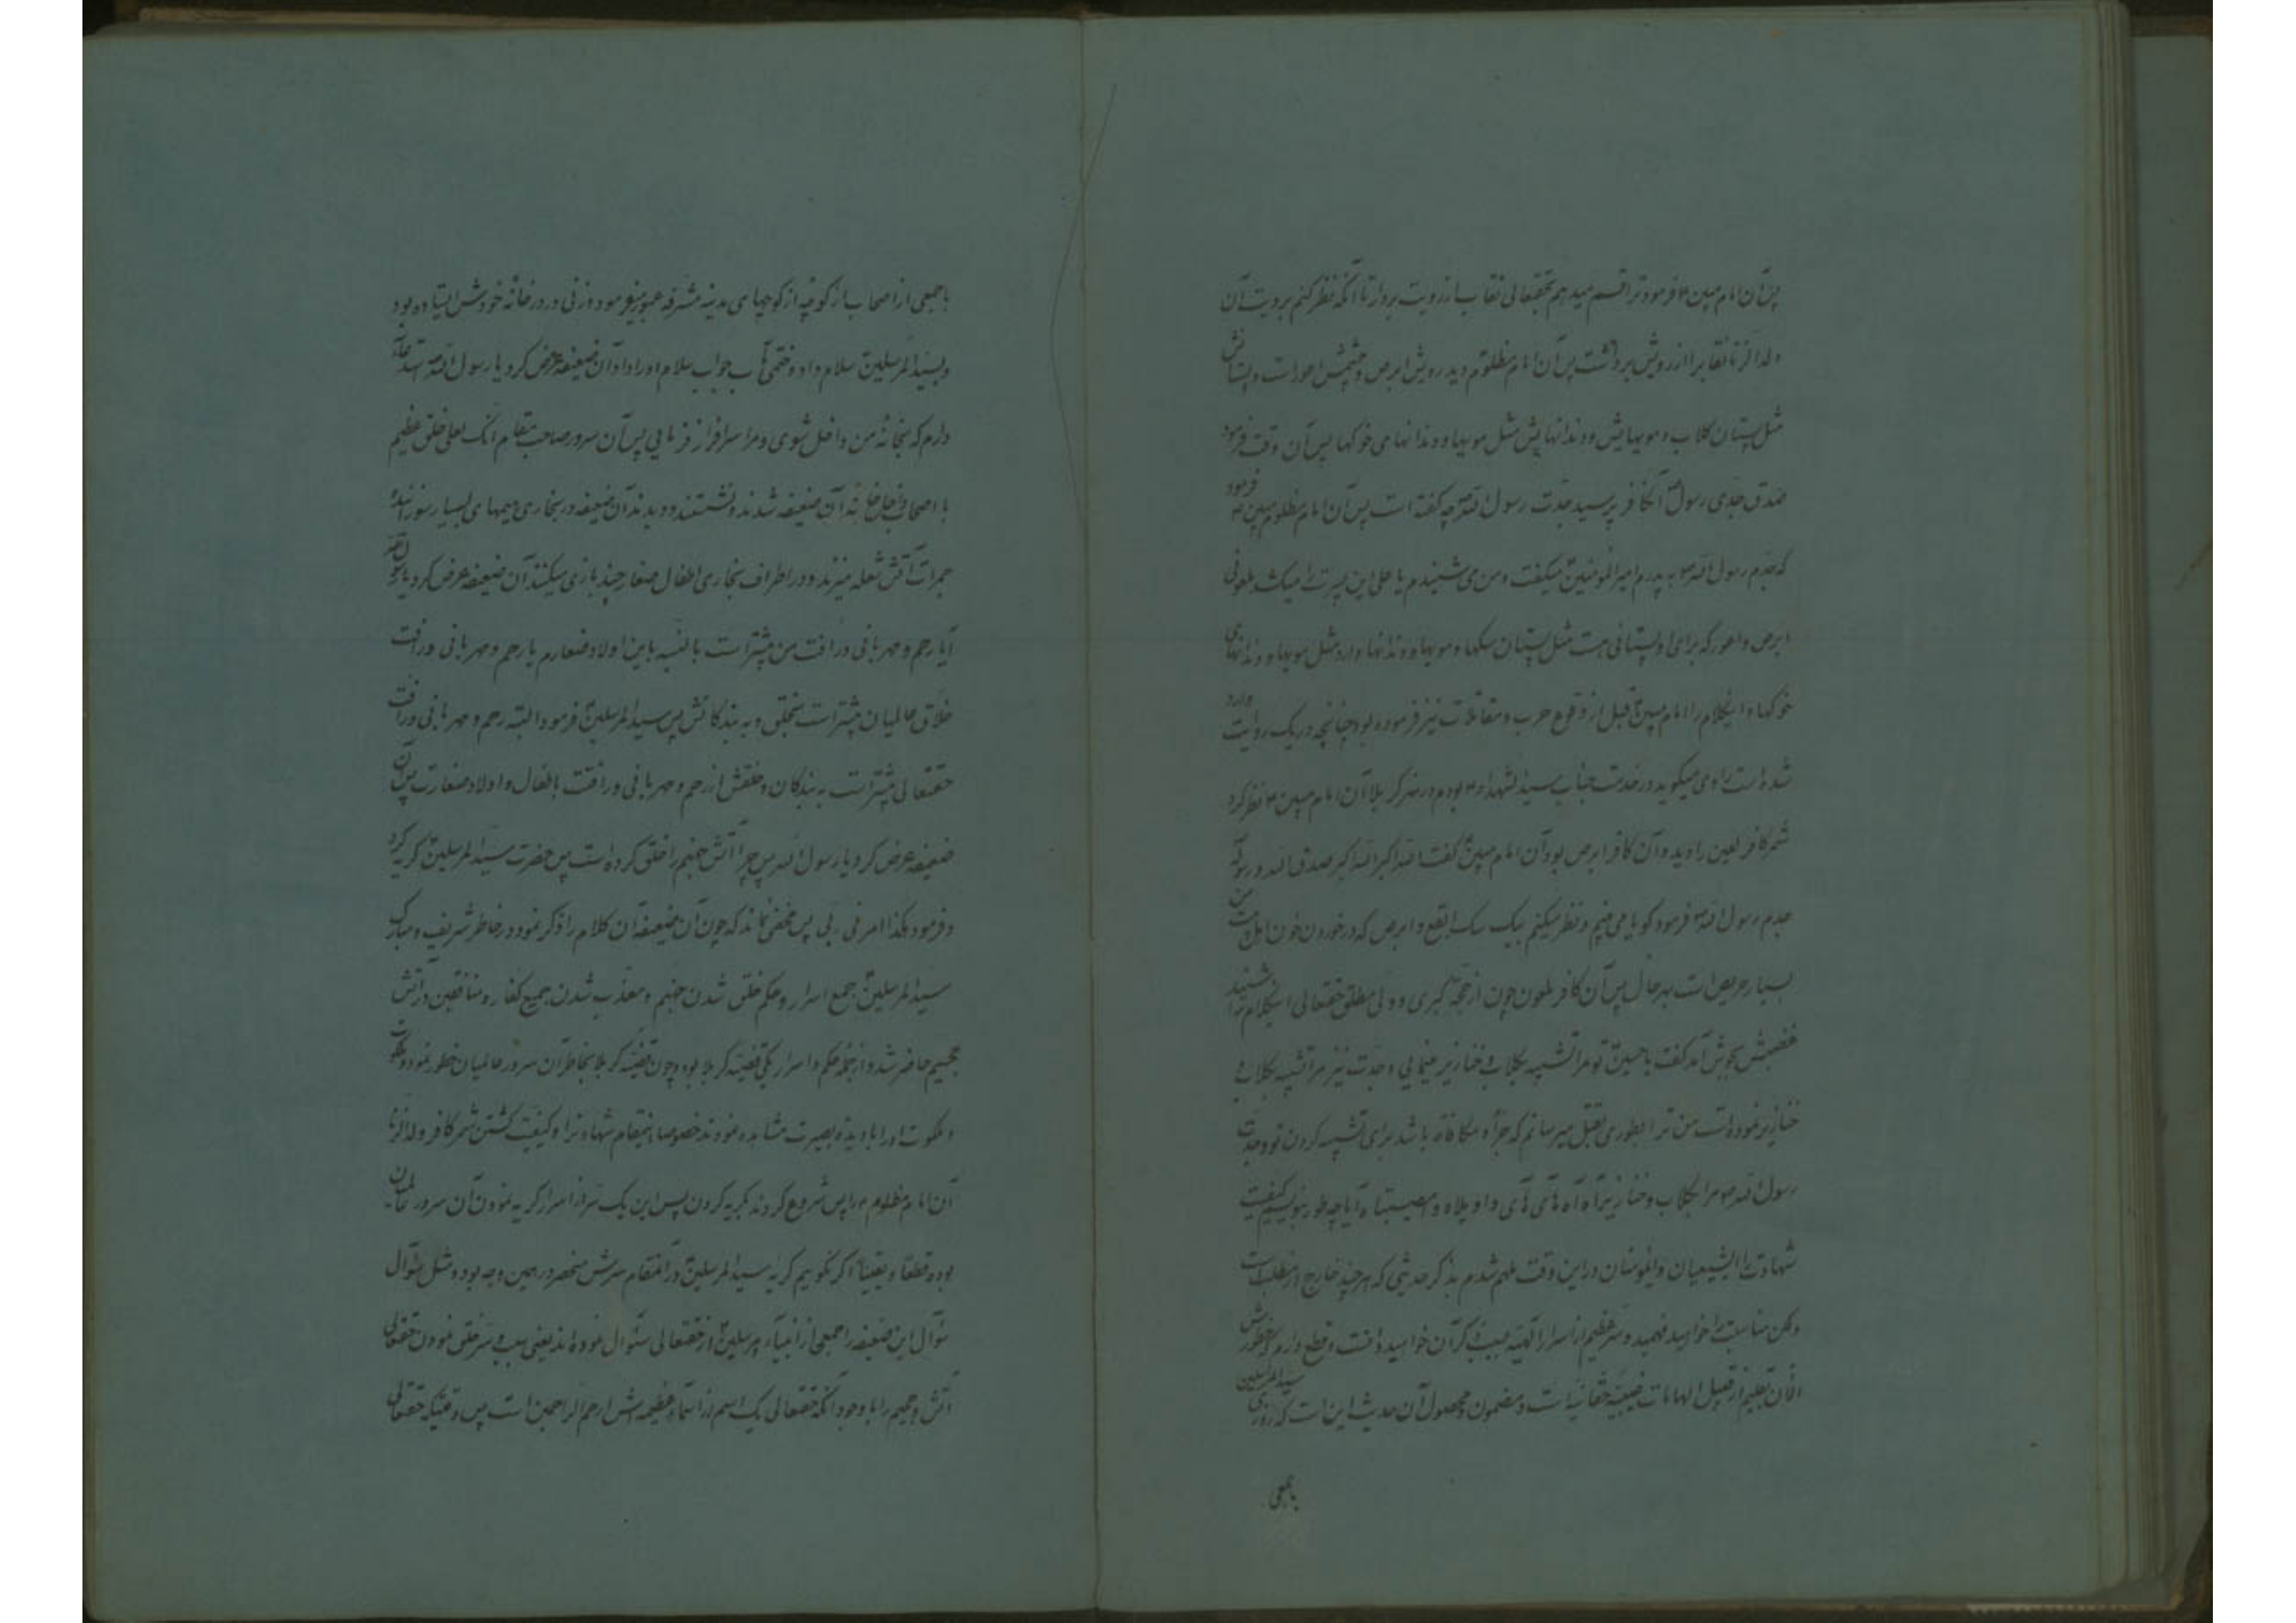 پس آن امام مبین ع فرمود ترا قسم میدهم بحقتعالی نقاب از رویت بردار تا آنکه نظر کنم برویت آن
ولد الزنا نقابرا از رویش برداشت پس آن امام مظلوم دید رویش ابرص و چشمش اعور است و پستانش
مثل پستان کلاب و مویهایش و دندانهایش مثل مویها و دندانهای خوکها پس آن وقت فرمود
صدق جدی رسول الله آنکافر پرسید جدت رسول الله ص چه گفته است پس آن امام مظلوم مبین ع فرمود
که جدم رسول الله ص به پدرم امیر المؤمنین میگفت و من می شنیدم یا علی این پسرت را میکشد ملعونی
ابرص و اعور که برای او پستانی هست مثل پستان سگها و مویها و دندانها دارد مثل مویها و دندانهای
خوکها و اینکلام را امام مبین قبل از وقوع حرب و مقاتلات نیز فرموده بود چنانچه در یک روایت وارد
شده است راوی میگوید در خدمت جناب سید الشهداء ع بودم در نهر کربلا آن امام مبین ع نظر کرد
شمر کافر لعین را دید و آن کافر ابرص بود آن امام مبین گفت الله اکبر الله اکبر صدق الله و رسوله
جدم رسول الله ص فرمود گویا می بینم و نظر میکنم بیک سک ابقع و ابرص که در خوردن خون اهل بیت من
بسیار حریص است بهرحال پس آن کافر ملعون چون از حجة کبری و ولی مطلق حقتعالی اینکلام را شنید
غضبش بجوش آمد گفت یا حسین تو مرا تشبیه بکلاب و خنازیر مینمایی و جدت نیز مرا تشبیه بکلاب و
خنازیر نموده است من ترا بطوری بقتل میرسانم که جزاء و مکافاة باشد برای تشبیه کردن تو و جدت
رسول الله ص مرا بکلاب و خنازیر آه آه هآی هآی واویلاه وامصیبتاه آیا چطور بنویسم کیفیت
شهادت را ایشیعیان و ایمؤمنان در این وقت ملهم شدم بذکر حدیثی که هر چند خارج از مطلب است
ولکن مناسبت را خواهید فهمید و سر عظیم از اسرار الهیه بسبب ذکر آن خواهید یافت و قطع دارم که خطورش
الآن بقلبم از قبیل الهامات غیبیه حقانیه است و مضمون و محصول آن حدیث این است که روزی سید المرسلین
باجمعی
باجمعی از اصحاب از کوچه از کوچهای مدینه مشرفه عبور میفرمود و زنی در در خانه خودش ایستاده بود
و بسید المرسلین سلام داد و ختمی مآب جواب سلام او را داد آن ضعیفه عرض کرد یا رسول الله ص استدعا
دارم که بخانه من داخل شوی و مرا سرافراز فرمایی پس آن سرور صاحب مقام انک لعلی خلق عظیم
با اصحاب داخل خانه آن ضعیفه شدند و نشستند و دیدند آن ضعیفه در بخاری هیمهای بسیار سوزانیده
جمرات آتش شعله میزند و در اطراف بخاری اطفال صغار چند بازی میکنند آن ضعیفه عرض کرد یا رسول الله ص
آیا رحم و مهربانی و رافت من بیشتر است بالنسبه باین اولاد صغارم یا رحم و مهربانی و رافت
خلاق عالمیان بیشتر است بخلق و به بندگانش پس سید المرسلین فرمود البته رحم و مهربانی و رافت
حقتعالی بیشتر است به بندگان و خلقش از رحم و مهربانی و رافت باطفال و اولاد صغارت پس آن
ضعیفه عرض کرد یا رسول الله پس چرا آتش جهنم را خلق کرده است پس حضرت سید المرسلین گریه کرد
و فرمود هکذا امرنی ربی پس مخفی نماند که چون آن ضعیفه آن کلام را ذکر نمود در خاطر شریف و مبارک
سید المرسلین جمیع اسرار و حکم خلق شدن جهنم و معذب شدن جمیع کفار و منافقین در آتش
جحیم حاضر شد و از جمله حکم و اسرار یکی قضیه کربلا بود و چون قضیه کربلا بخاطر آن سرور عالمیان خطور نمود و ملک
و ملکوت او را با دیده بصیرت مشاهده نمودند خصوصا اینمقام شهادت را و کیفیت کشتن شمر کافر ولد الزنا
آن امام مظلوم ع را پس شروع کردند بگریه کردن پس این یک سر از اسرار گریه نمودن آن سرور عالمیان
بوده قطعا و یقینا اگر نگوییم گریه سید المرسلین در آنمقام سرش منحصر در همین وجه بود و مثل سؤال
سؤال این ضعیفه را جمعی از انبیآء مرسلین از حقتعالی سؤال نموده اند یعنی سبب و سر خلق نمودن حقتعالی
آتش و جحیم را با وجود آنکه حقتعالی یک اسم از اسماء عظیمه اش ارحم الراحمین است پس وقتیکه حقتعالی